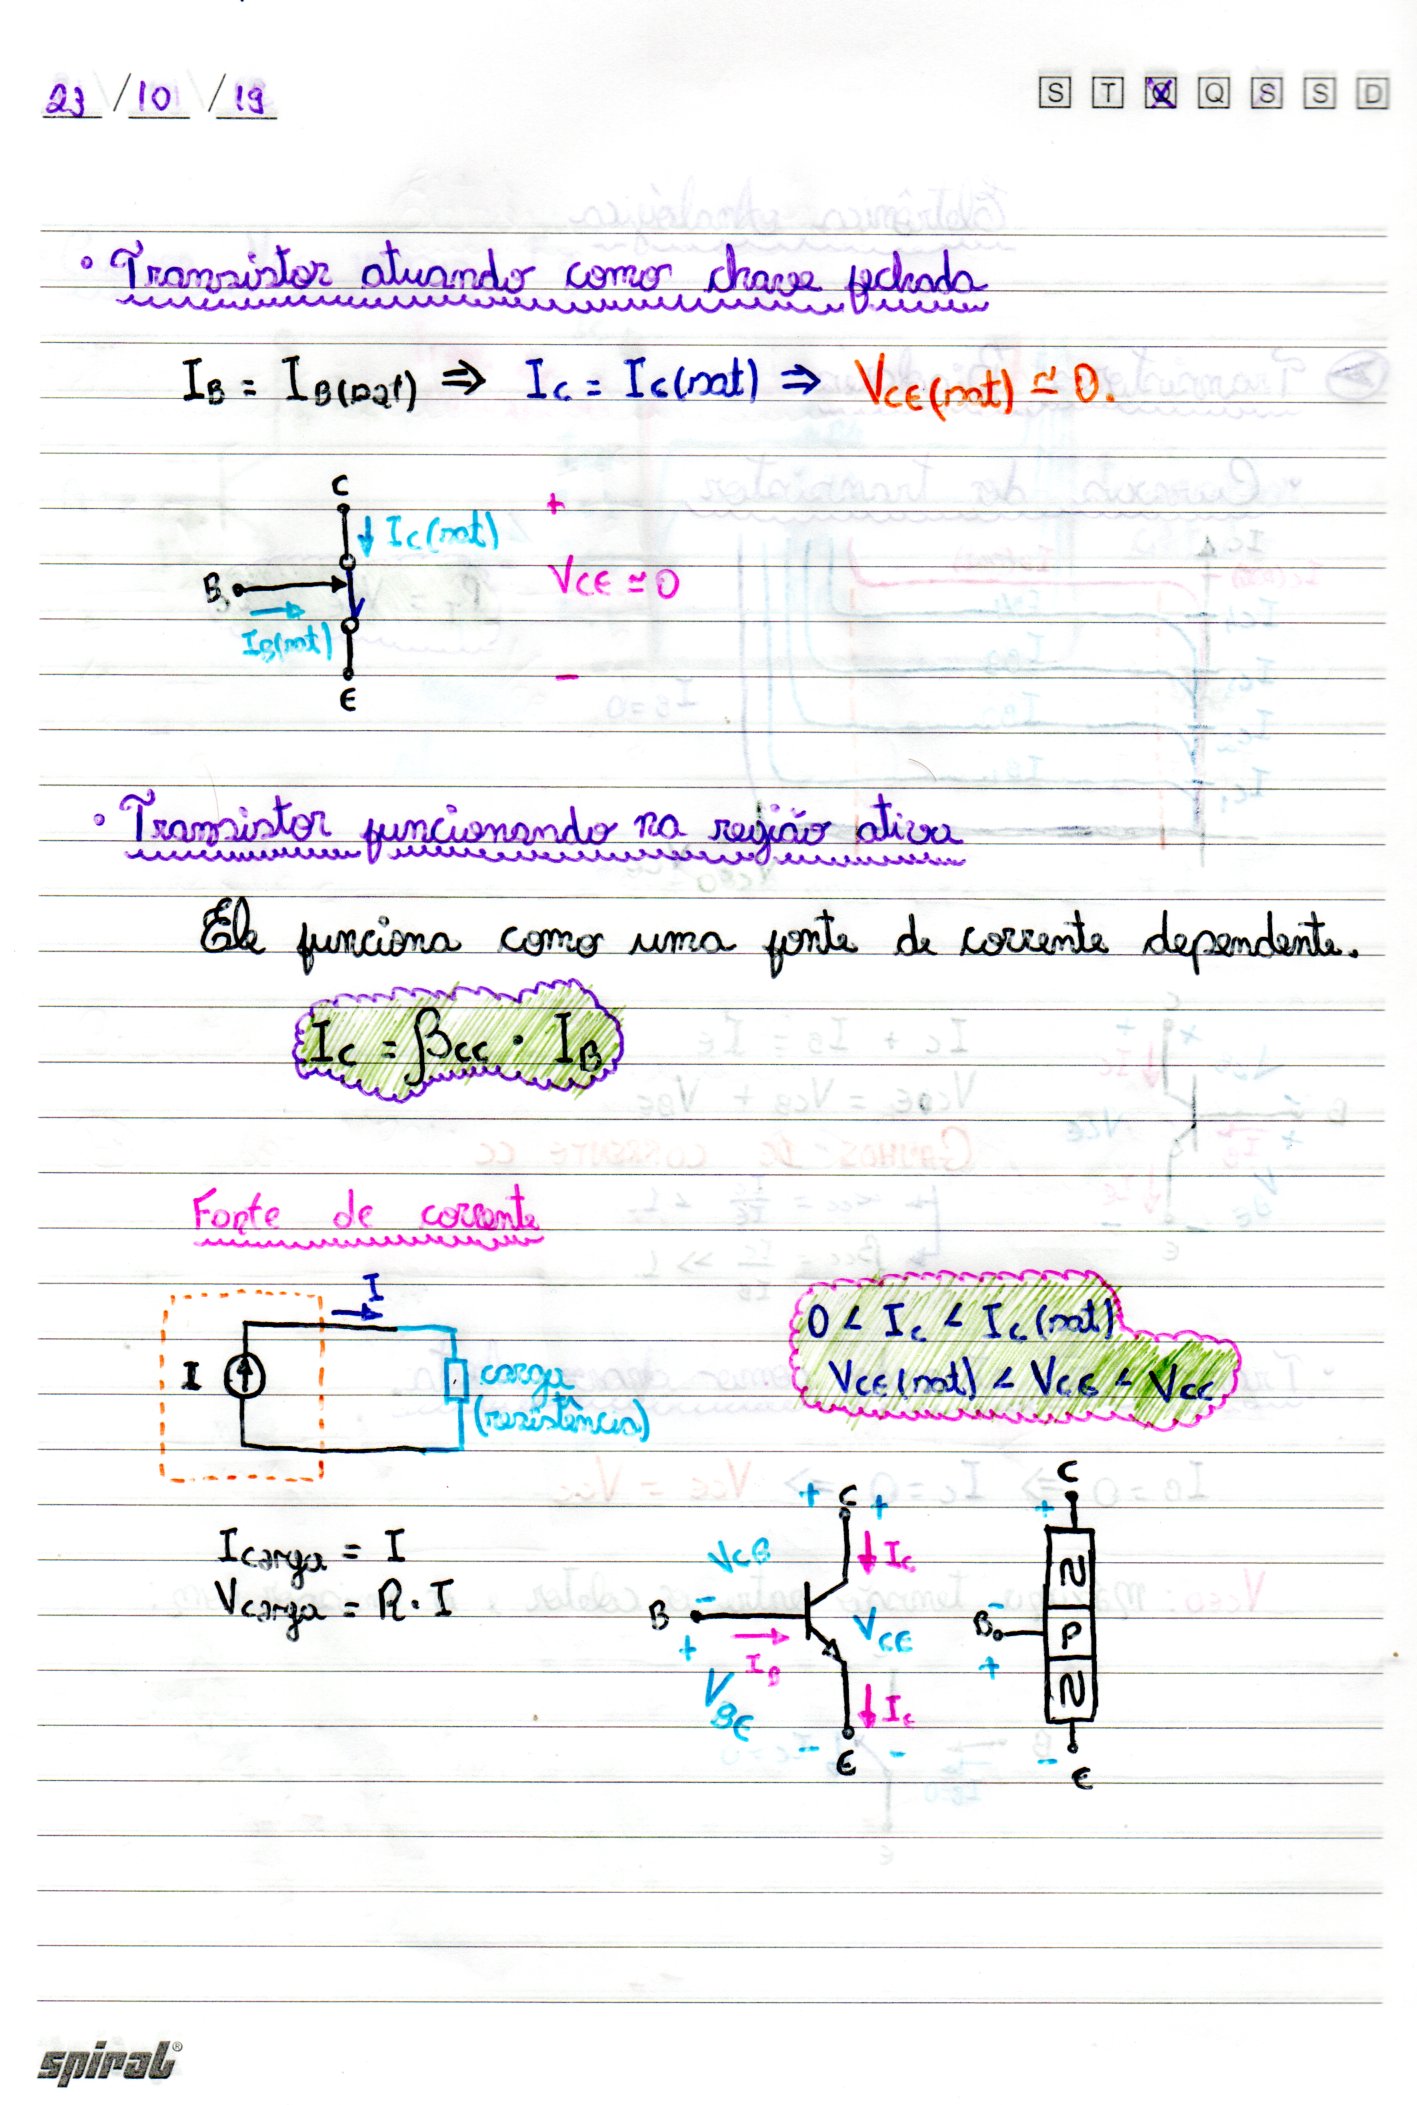 23 / 10 / 19
S T Q Q S S D
• Transistor atuando como chave fechada
IB = IB(sat) ⇒ IC = IC(sat) ⇒ VCE(sat) ≃ 0.
C
+
IC(sat)
B
VCE ≃ 0
IB(sat)
E
−
• Transistor funcionando na região ativa
Ele funciona como uma fonte de corrente dependente.
IC = βCC · IB
Fonte de corrente
I
I
carga
(resistência)
0 < IC < IC(sat)
VCE(sat) < VCE < VCC
Icarga = I
Vcarga = R · I
+ C +
VCB
IC
B
−
+
IB
VCE
VBE
IC
− E −
C
+
N
B
−
P
+
N
−
E
spiral®